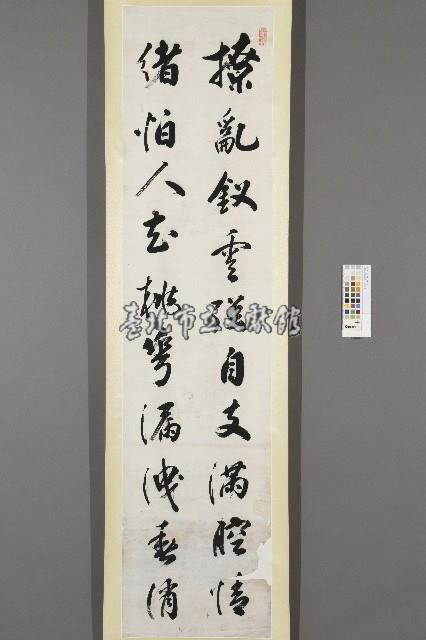 撩亂釵雲自支滿腔情
緒怕人知漏洩春消
臺北市立文獻館